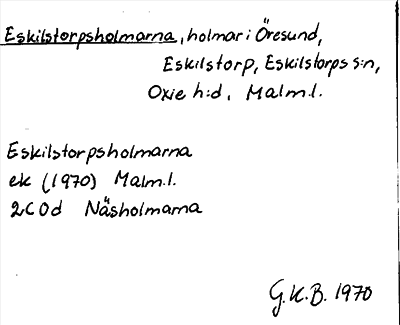 Eskilstorpsholmarna, holmar i Öresund,
Eskilstorp, Eskilstorps s:n,
Oxie h:d, Malm.l.
Eskilstorpsholmarna
ek (1970) Malm.l.
2C0d Näsholmarna
G.K.B. 1970